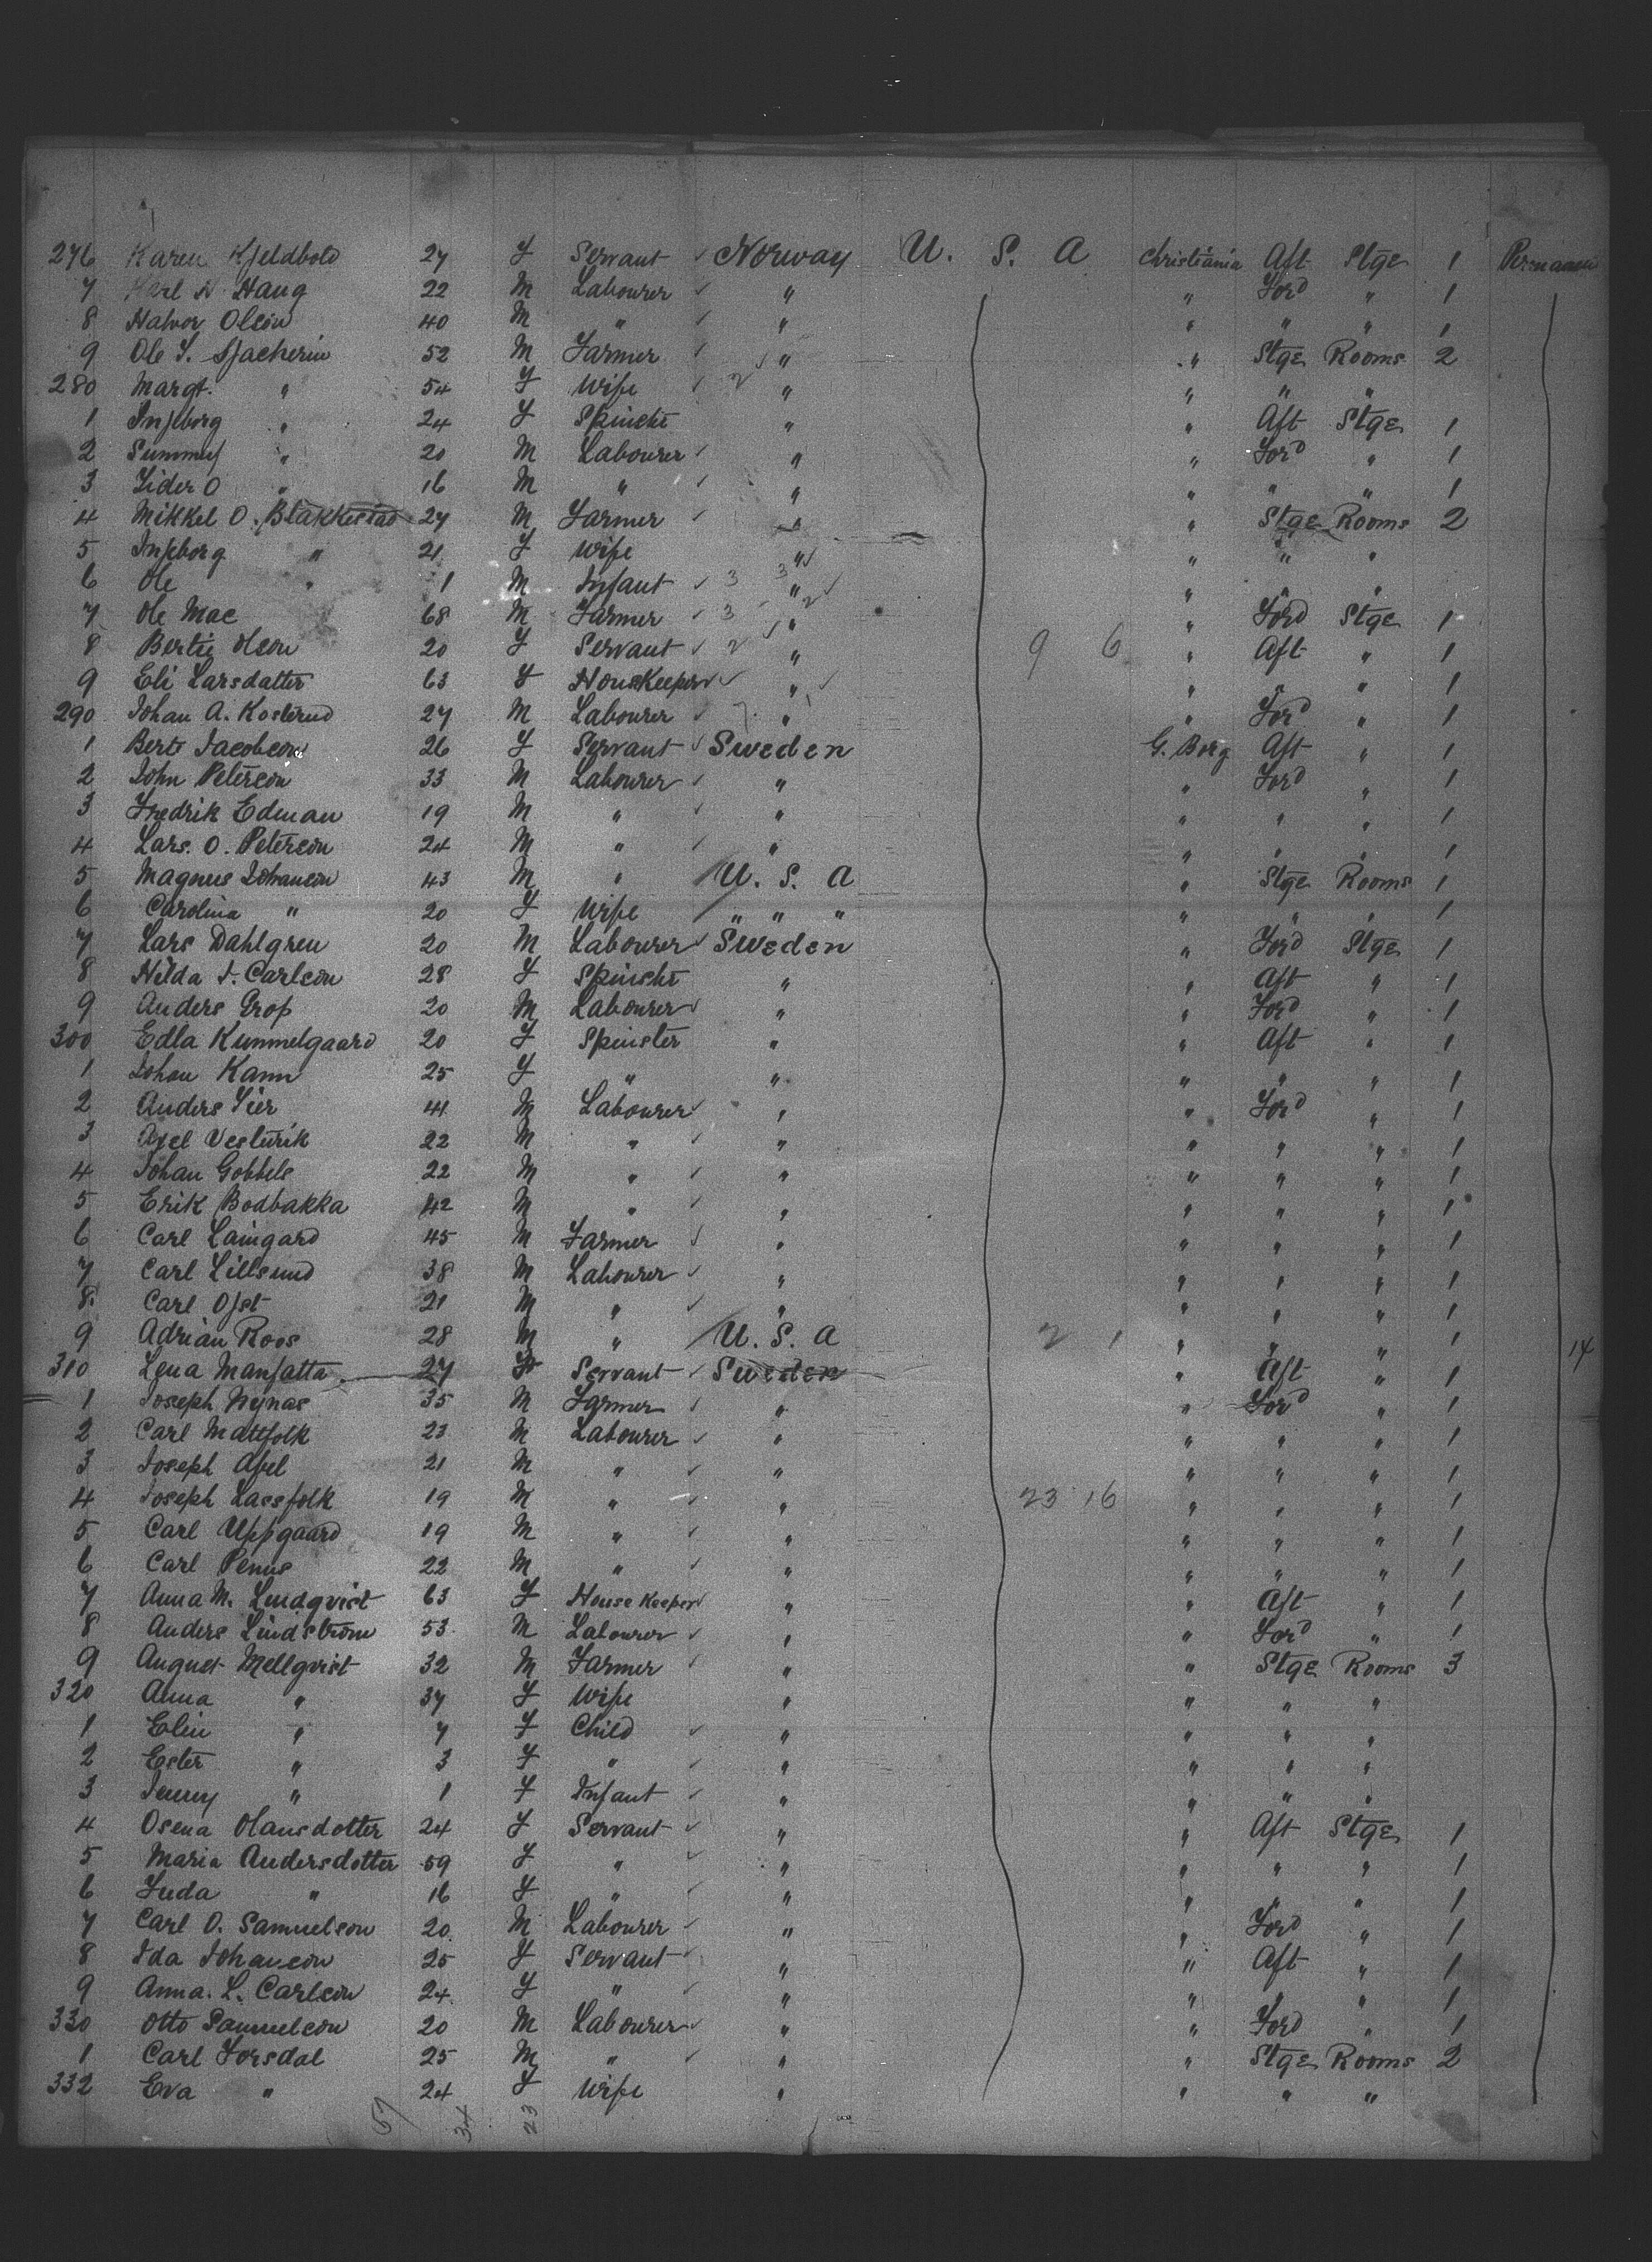 276 Karen Kjeldbolo 27 F Servant ✓ Norway U. S. A Christiania Aft Stge 1
7 Karl H Haug 22 M Labourer ✓ " " Ford " 1
8 Halvor Olson 40 M " ✓ " " " " 1
9 Ole S. 52 M Farmer ✓ " " Stge Rooms 2
280 Margt. " 54 F Wife ✓ 2 " " " "
1 Injborg " 24 F Spinstr " " Aft Stge 1
2 " 20 M Labourer ✓ " " Ford " 1
3 O " 16 M " ✓ " " " " 1
4 Mikkel O. Blakkestad 27 M Farmer ✓ " " Stge Rooms 2
5 Injeborg " 21 F Wife " ✓ " " "
6 Ole " 1 M Infant ✓ 3 3 " ✓ " " "
7 Ole Moe 68 M Farmer ✓ 3 2 " " Ford Stge 1
8 Bertie Olson 20 F Servant ✓ 2 ✓ " 9 6 " Aft " 1
9 Eli Larsdatter 63 F HousKeeper ✓ " ✓ " " " 1
290 Johan A. Kosterud 27 M Labourer ✓ 7 " 1 " Ford " 1
1 Bert Jacobson 26 F Servant ✓ Sweden G. Borg Aft " 1
2 John Peterson 33 M Labourer ✓ " " Ford " 1
3 Fredrik Edman 19 M " ✓ " " " " 1
4 Lars. O. Peterson 24 M " ✓ " " " " 1
5 Magnus Johanson 43 M " U. S. A " Stge Rooms 1
6 Carolina " 20 F Wife " " " " " " 1
7 Lars Dahlgren 20 M Labourer ✓ Sweden " Ford Stge 1
8 Hilda S. Carlson 28 F Spinstr " " Aft " 1
9 Anders Grop 20 M Labourer ✓ " " Ford " 1
300 Edla Kummelgaard 20 F Spinster " " Aft " 1
1 Johan Kann 25 F " " " " " 1
2 Anders Sier 41 M Labourer ✓ " " Ford " 1
3 Axel Vesterik 22 M " " " " " 1
4 Johan Gobbels 22 M " ✓ " " " " 1
5 Erik Bodbakka 42 M " ✓ " " " " 1
6 Carl Laingard 45 M Farmer ✓ " " " " 1
7 Carl Lillsund 38 M Labourer ✓ " " " " 1
8 Carl Ofst 21 M " ✓ " " " " 1
9 Adrian Roos 28 M " U. S. A 2 1 " " " 1 14
310 Lena Mansatta 27 F Servant ✓ Sweden " Aft " 1
1 Joseph Nynas 35 M Farmer ✓ " " Ford " 1
2 Carl Mattfolk 23 M Labourer ✓ " " " " 1
3 Joseph Abel 21 M " ✓ " " " " 1
4 Joseph Lassfolk 19 M " ✓ " 23 16 " " " 1
5 Carl Uppgaard 19 M " ✓ " " " " 1
6 Carl Penus 22 M " ✓ " " " " 1
7 Anna M. Lindqvist 63 F House Keeper ✓ " " Aft " 1
8 Anders Lindstrom 53 M Labourer ✓ " " Ford " 1
9 August Mellqvist 32 M Farmer ✓ " " Stge Rooms 3
320 Anna " 37 F Wife " " " "
1 Elin " 7 F Child ✓ " " " "
2 Ester " 3 F " ✓ " " " "
3 Jenny " 1 F Infant ✓ " " " "
4 Osena Olausdotter 24 F Servant ✓ " " Aft Stge 1
5 Maria Andersdotter 59 F " ✓ " " " " 1
6 " 16 F " ✓ " " " " 1
7 Carl O. Samuelson 20 M Labourer ✓ " " Ford " 1
8 Ida Johanson 25 F Servant ✓ " " Aft " 1
9 Anna. L. Carlson 24 F " ✓ " " " " 1
330 Otto Samuelson 20 M Labourer ✓ " " Ford " 1
1 Carl Forsdal 25 M " ✓ " " Stge Rooms 2
332 Eva " 24 F Wife " " " "
57 34 23